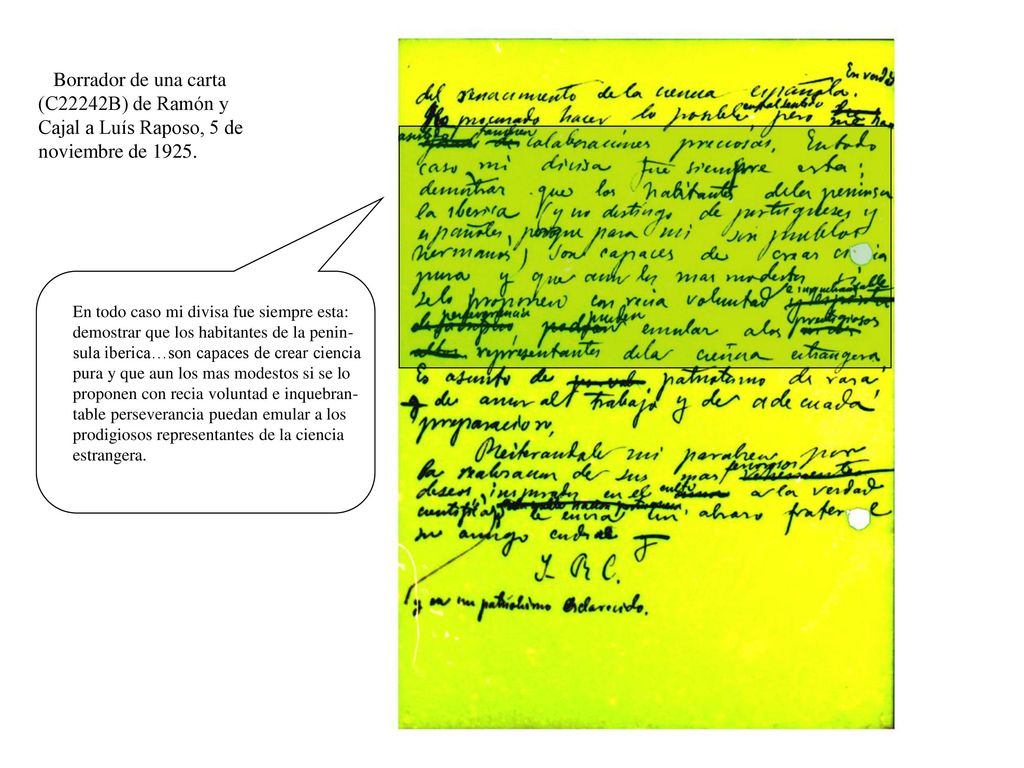 Borrador de una carta
(C22242B) de Ramón y
Cajal a Luís Raposo, 5 de
noviembre de 1925.
En todo caso mi divisa fue siempre esta:
demostrar que los habitantes de la penin-
sula iberica…son capaces de crear ciencia
pura y que aun los mas modestos si se lo
proponen con recia voluntad e inquebran-
table perseverancia puedan emular a los
prodigiosos representantes de la ciencia
estrangera.
En verdad
del renacimiento de la ciencia española.
He procurado hacer lo posible en tal sentido pero
tambien colaboraciones preciosas. En todo
caso mi divisa fue siempre esta:
demostrar que los habitantes de la peninsu
la iberica (y no distingo de portugueses y
españoles, porque para mi son pueblos
hermanos) son capaces de crear ciencia
pura y que aun los mas modestos si
se lo proponen con recia voluntad e inquebrantable
perseverancia pueden emular a los prodigiosos
representantes de la ciencia estrangera
Es asunto de patriotismo de raza,
de amor al trabajo y de adecuada
preparacion,
Reiterandole mi parabien por
la realizacion de sus mas fervorosos
deseos, inspirados en el culto a la verdad
cientifica, le envia un abrazo fraternal
su amigo cordial
S R C.
y en un patriotismo esclarecido.